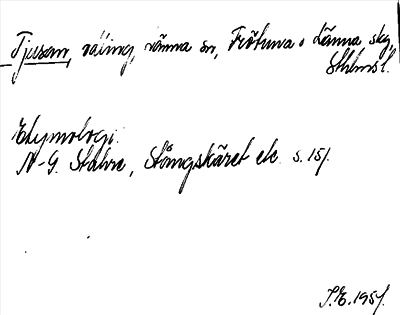 Tjusan, väling, Länna sn, Frötuna o Länna skg,
Sthlmsl.
Etymologi.
N-G. Stahre, Stångskäret etc s. 151.
S.E. 1957.